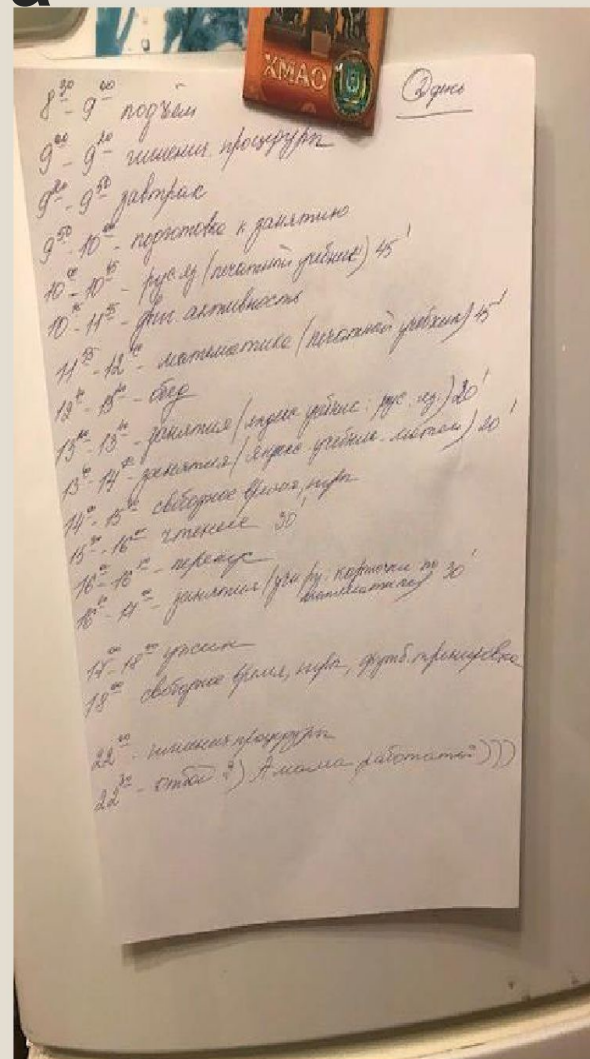 ХМАО
2 день
8³⁰ - 9⁰⁰ подъём
9⁰⁰ - 9²⁰ гигиенич. процедуры
9²⁰ - 9⁵⁰ завтрак
9⁵⁰ - 10⁰⁰ - подготовка к занятию
10⁰⁰ - 10⁴⁵ - рус яз (печатный учебник) 45'
физ. активность
математика (печатный учебник) 45'
обед
занятия (яндекс учебник: рус. яз.) 20'
занятия (яндекс. учебник. матем) 20'
свободное время, игры
чтение 30'
перекус
занятия (учи ру. карточки по
математике) 30'
17⁰⁰ - 18⁰⁰ ужин
18⁰⁰ свободное время, игры, футб. тренировка
22⁰⁰ - гигиен процедуры
22³⁰ - отбой А мама работать)))